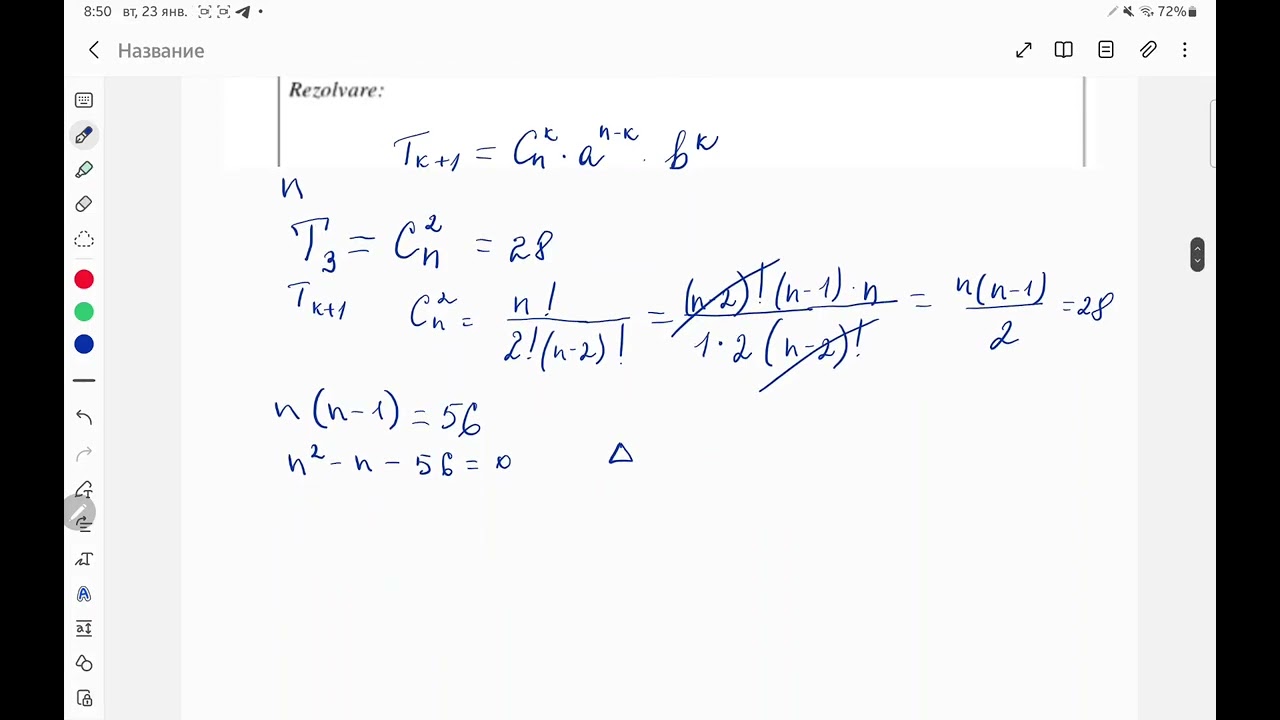 8:50 вт, 23 янв. 72%
Название
Rezolvare:
T_{k+1} = C_n^k · a^{n-k} · b^k
n
T_3 = C_n^2 = 28
T_{k+1} C_n^2 = \frac{n!}{2!(n-2)!} = \frac{(n-2)!(n-1)·n}{1·2(n-2)!} = \frac{n(n-1)}{2} = 28
n(n-1) = 56
n² - n - 56 = 0 Δ